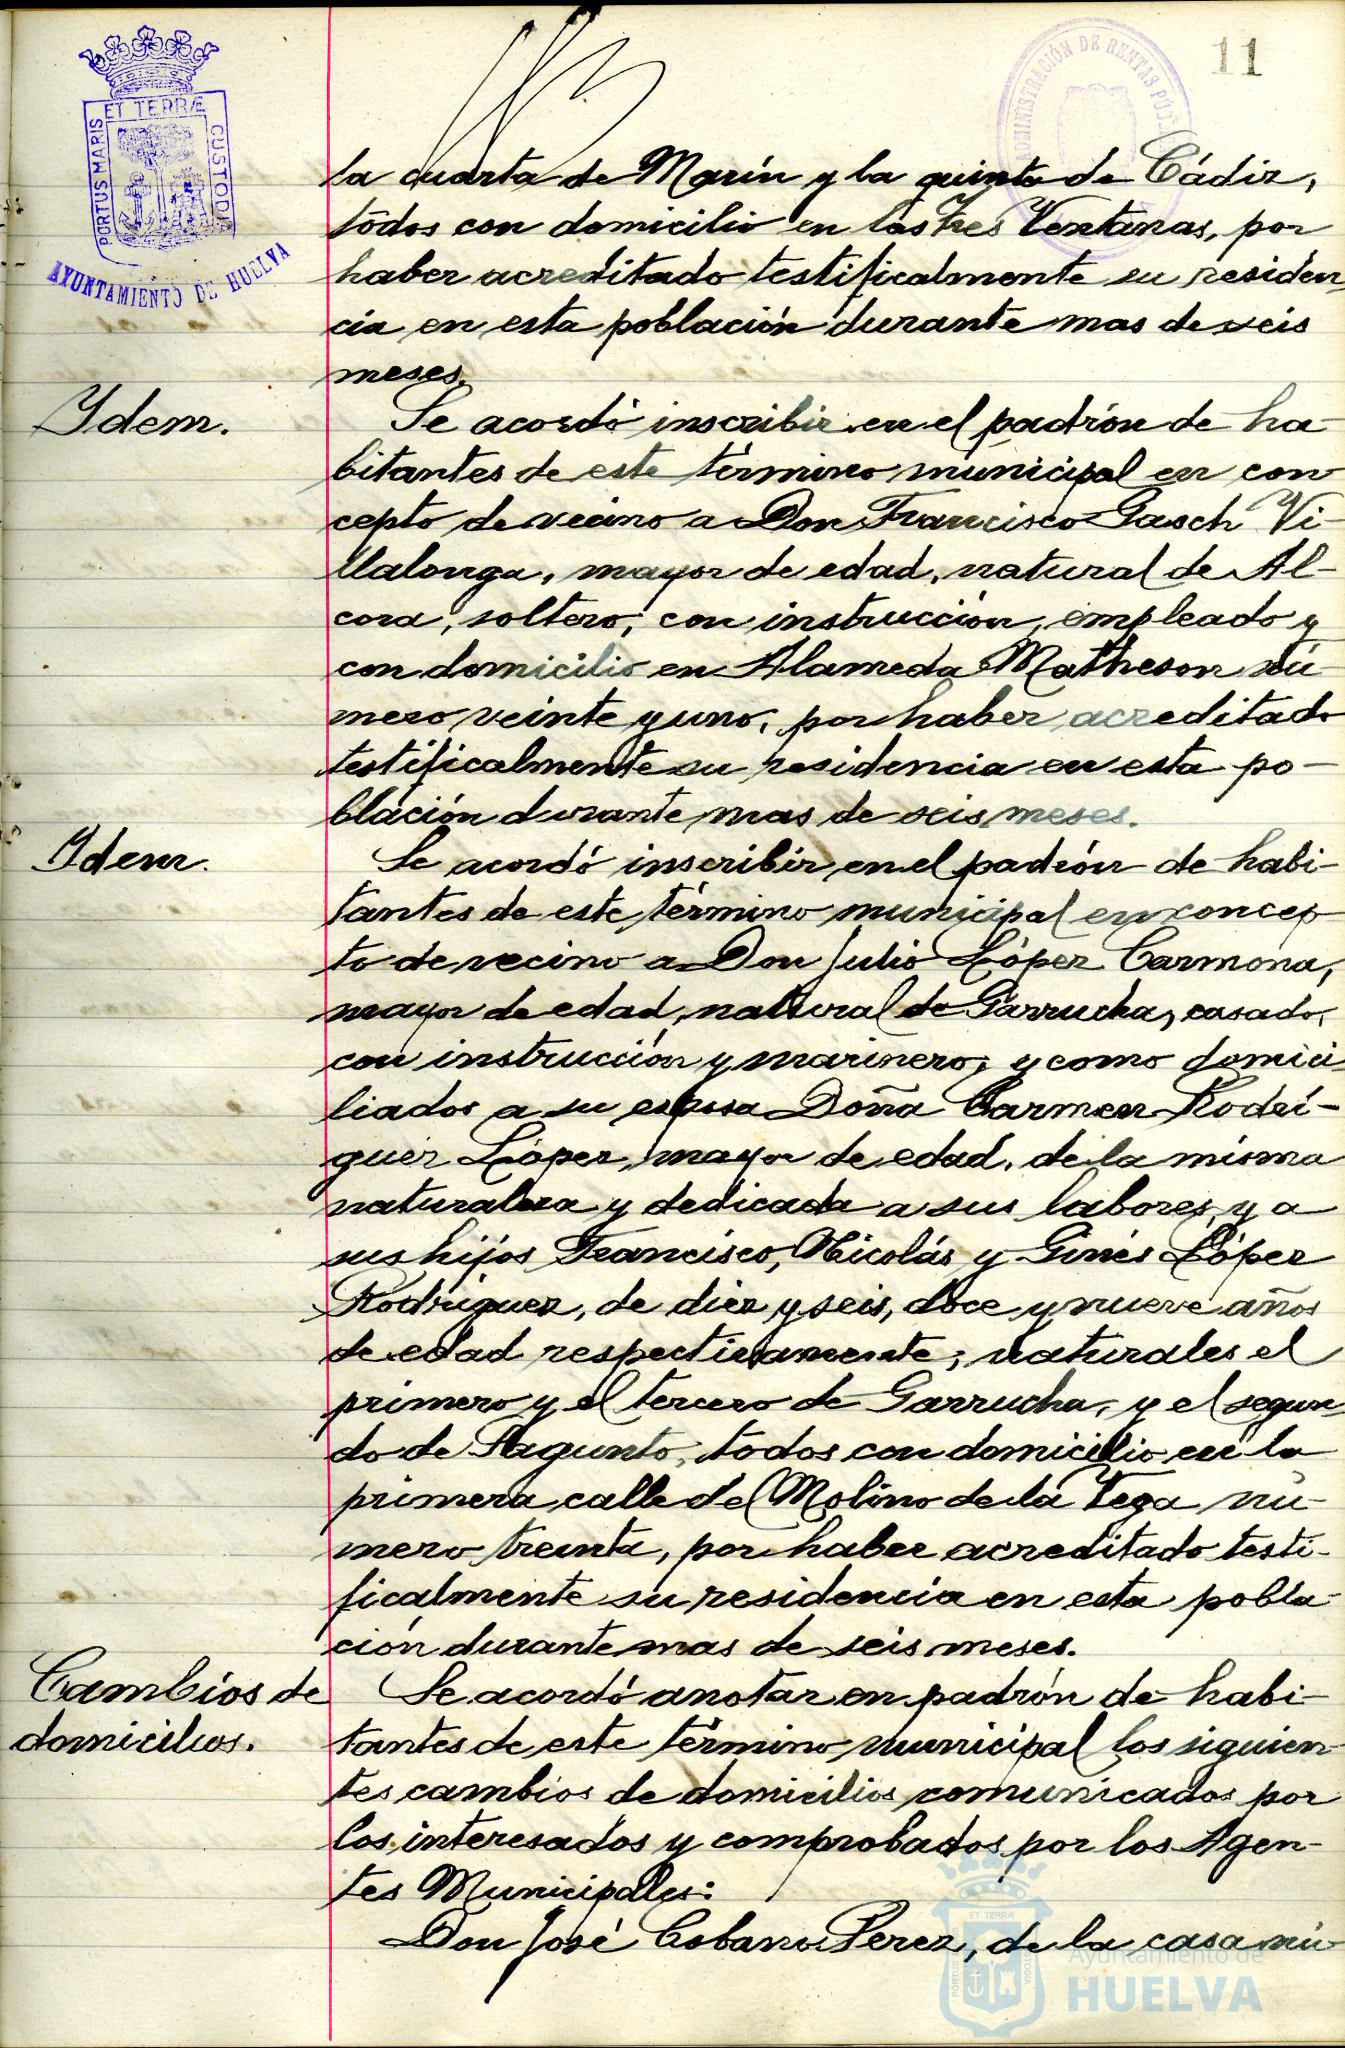 11
PORTUS MARIS ET TERRÆ CUSTODIA
AYUNTAMIENTO DE HUELVA
ADMINISTRACIÓN DE RENTAS PÚB
la cuarta de Marín y la quinta de Cádiz,
todos con domicilio en las Tres Ventanas, por
haber acreditado testificalmente su residen
cia en esta población durante mas de seis
meses.
Ydem.
Se acordó inscribir en el padrón de ha
bitantes de este término municipal en con
cepto de vecino a Don Francisco Gasch Vi-
llalonga, mayor de edad, natural de Al-
cora, soltero, con instrucción, empleado y
con domicilio en Alameda Matheson nú
mero veinte y uno, por haber acreditado
testificalmente su residencia en esta po-
blación durante mas de seis meses.
Ydem.
Se acordó inscribir en el padrón de habi-
tantes de este término municipal en concep
to de vecino a Don Julio López Carmona,
mayor de edad, natural de Garrucha, casado,
con instrucción y marinero, y como domici
liados a su esposa Doña Carmen Rodrí-
guez López, mayor de edad, de la misma
naturaleza y dedicada a sus labores, y a
sus hijos Francisco, Nicolás y Ginés López
Rodríguez, de diez y seis, doce y nueve años
de edad respectivamente; naturales el
primero y el tercero de Garrucha, y el segun
do de Sagunto, todos con domicilio en la
primera calle del Molino de la Vega nú-
mero treinta, por haber acreditado testi-
ficalmente su residencia en esta pobla-
ción durante mas de seis meses.
Cambios de
domicilios.
Se acordó anotar en padrón de habi-
tantes de este término municipal los siguien
tes cambios de domicilios comunicados por
los interesados y comprobados por los Agen-
tes Municipales:
Don José Cobano Perez, de la casa nú
Ayuntamiento de
HUELVA